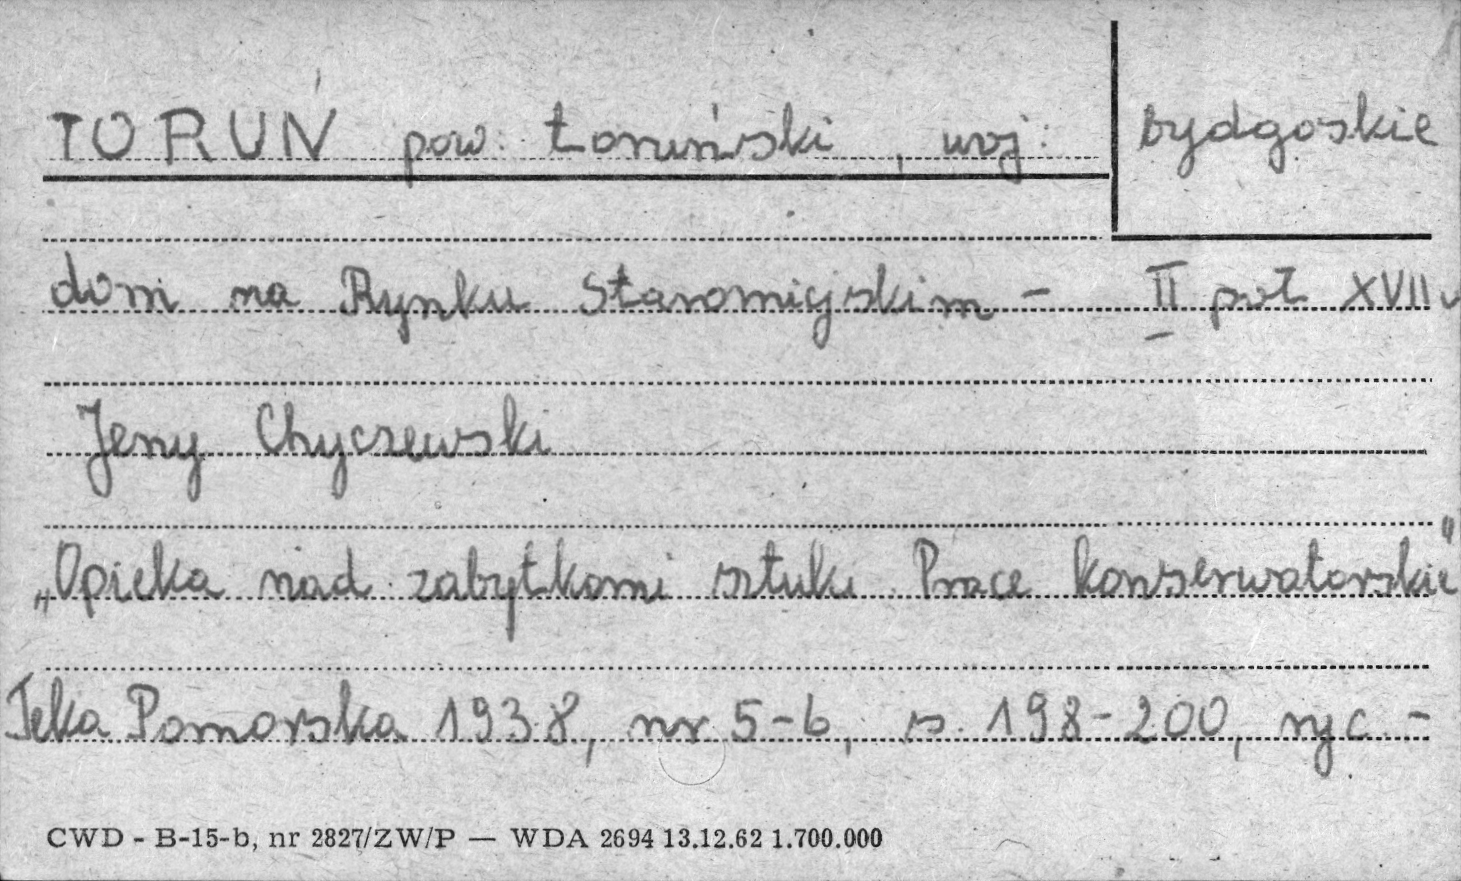 TORUŃ pow. toruński, woj. bydgoskie
dom na Rynku Staromiejskim - II poł XVII w
Jerzy Chyczewski
„Opieka nad zabytkami sztuki. Prace konserwatorskie"
Teka Pomorska 1938, nr 5-6, s. 198-200, ryc. -
CWD - B-15-b, nr 2827/ZW/P — WDA 2694 13.12.62 1.700.000